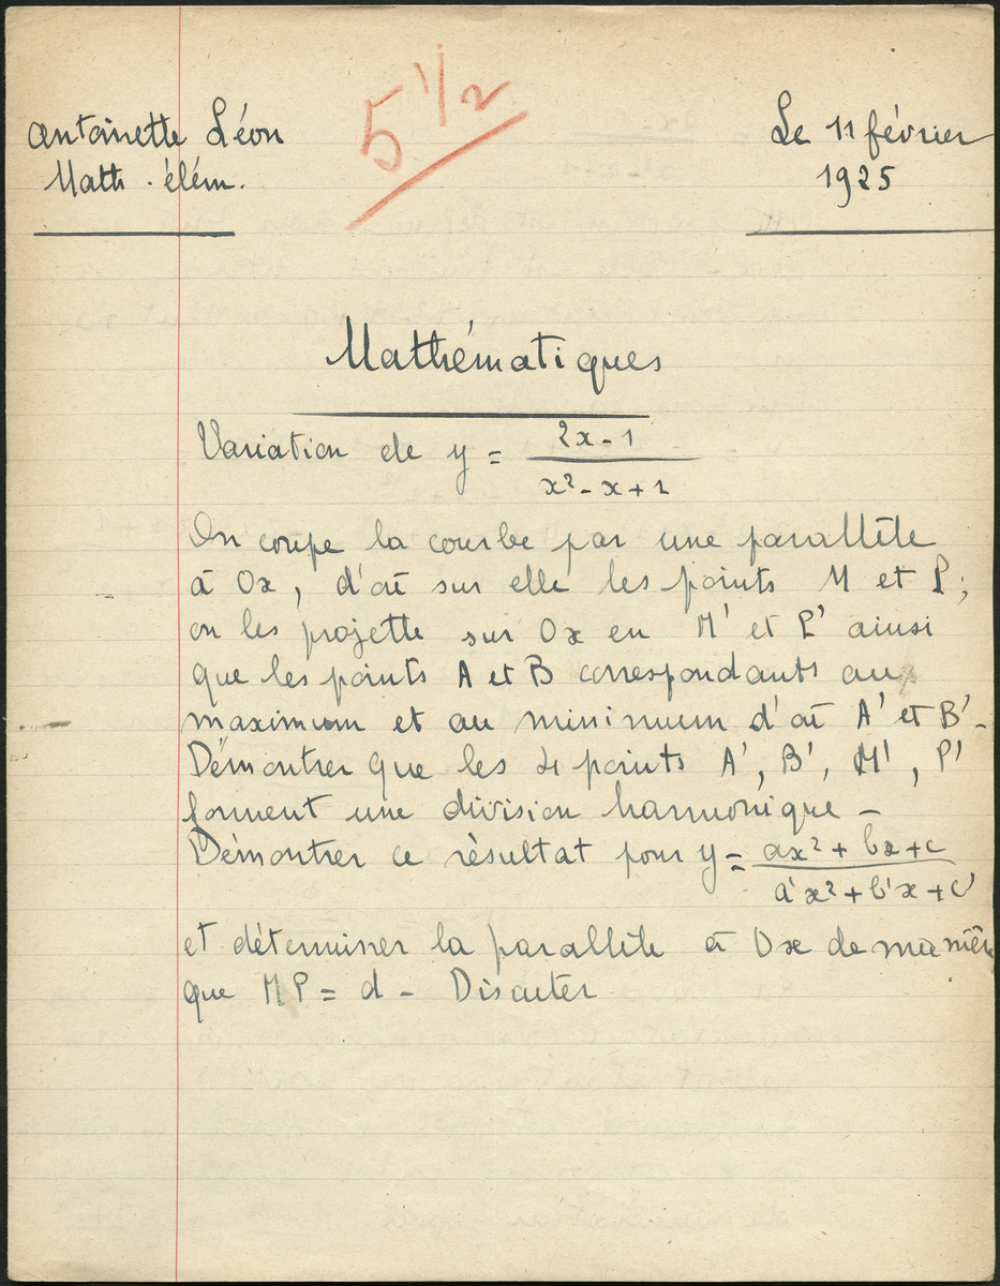 Antoinette Léon
Math. élém.
5 1/2
Le 11 février
1925
Mathématiques
Variation de y = (2x - 1)/(x² - x + 1)
On coupe la courbe par une parallèle
à Ox, d'où sur elle les points M et P ;
on les projette sur Ox en M' et P' ainsi
que les points A et B correspondants au
maximum et au minimum d'où A' et B'-
Démontrer que les 4 points A', B', M', P'
forment une division harmonique -
Démontrer ce résultat pour y = (ax² + bx + c)/(a'x² + b'x + c')
et déterminer la parallèle à Ox de manière
que MP = d - Discuter